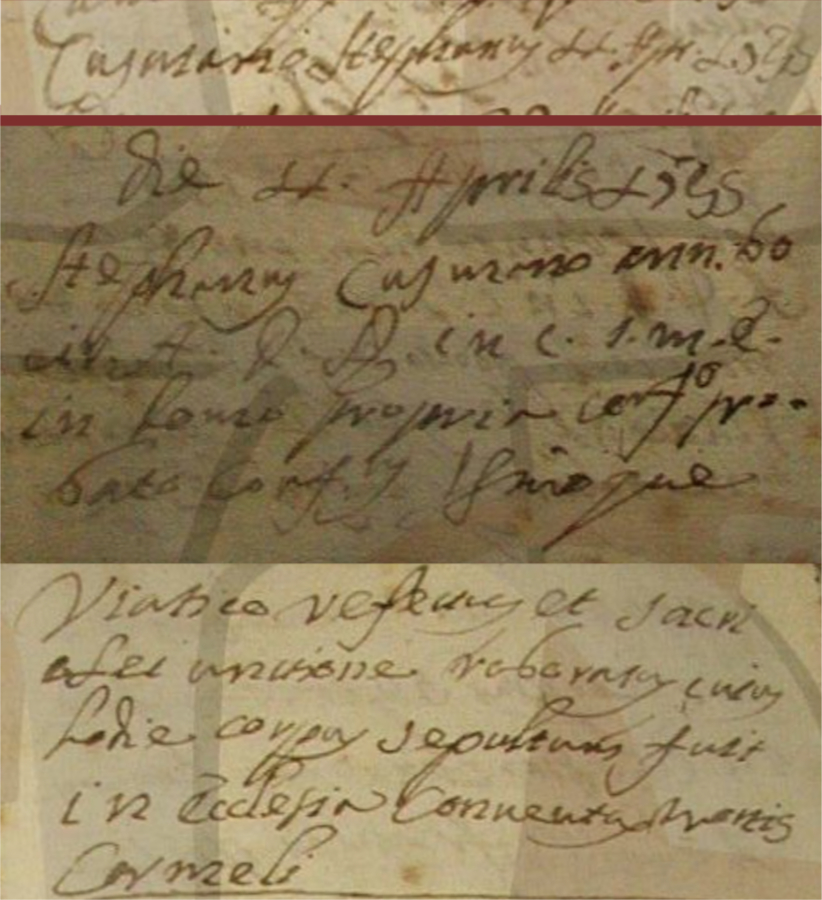 Casurano Stephanus 11. Apr.
die 11. Aprilis
Stephanus Casurano ann. 60
in c. s. m. e.
in domo propria conf.o pro-
bato conf.
Viatico refectus et sacri
olei unctione roboratus cuius
hodie corpus sepultum fuit
in Ecclesia Conventus Montis
Carmeli